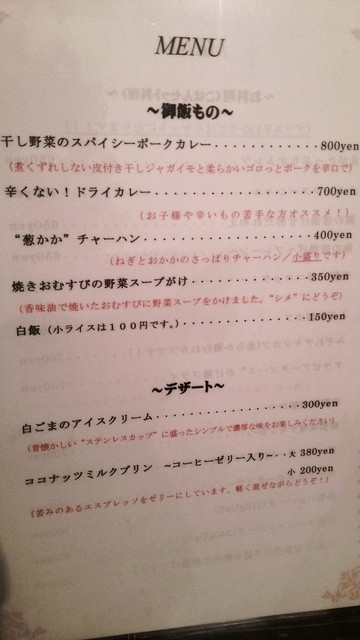 MENU
～御飯もの～
干し野菜のスパイシーポークカレー・・・・・・・・・・・・800yen
（煮くずれしない皮付き干しジャガイモと柔らかいゴロっとポークを辛口で）
辛くない！ドライカレー・・・・・・・・・・・・・・・・700yen
（お子様や辛いもの苦手な方オススメ！）
“葱かか”チャーハン・・・・・・・・・・・・・・・・・・400yen
（ねぎとおかかのさっぱりチャーハン／小盛りです）
焼きおむすびの野菜スープがけ・・・・・・・・・・・・・350yen
（香味油で焼いたおむすびに野菜スープをかけました。“シメ”にどうぞ）
白飯（小ライスは１００円です。）・・・・・・・・・・・・150yen
～デザート～
白ごまのアイスクリーム・・・・・・・・・・・・・・・・・300yen
（昔懐かしい“ステンレスカップ”に盛ったシンプルで濃厚な味をお楽しみください）
ココナッツミルクプリン ～コーヒーゼリー入り～・・大 380yen
小 200yen
（苦みのあるエスプレッソをゼリーにしています。軽く混ぜながらどうぞ！）